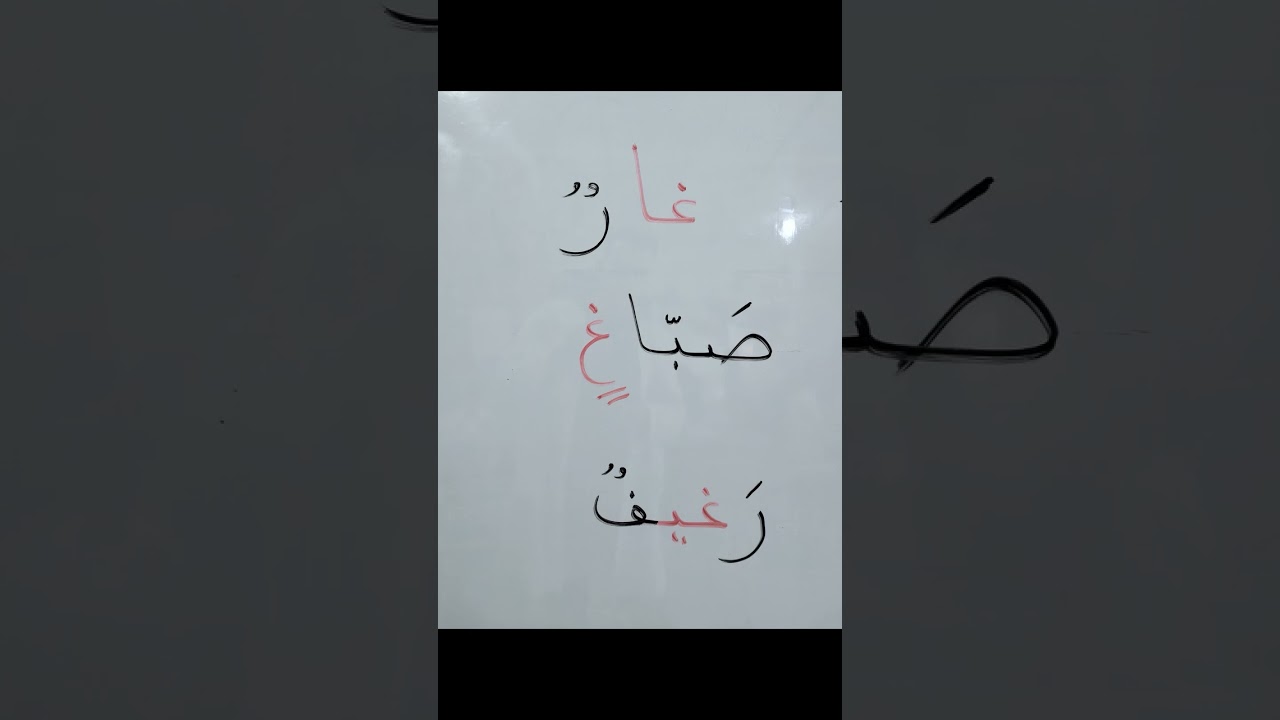 غارٌ
صَبّاغٍ
رَغيفٌ